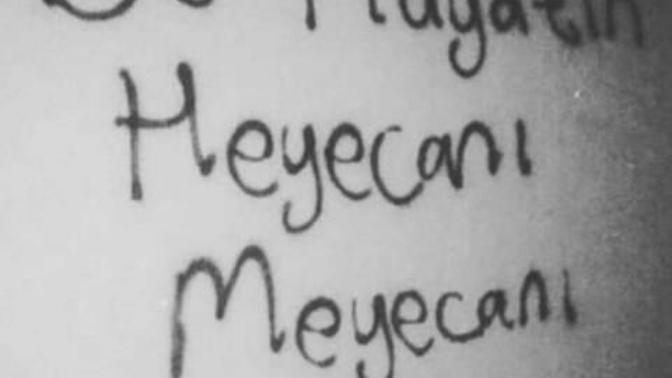 Bu Hayatın
Heyecanı
Meyecanı